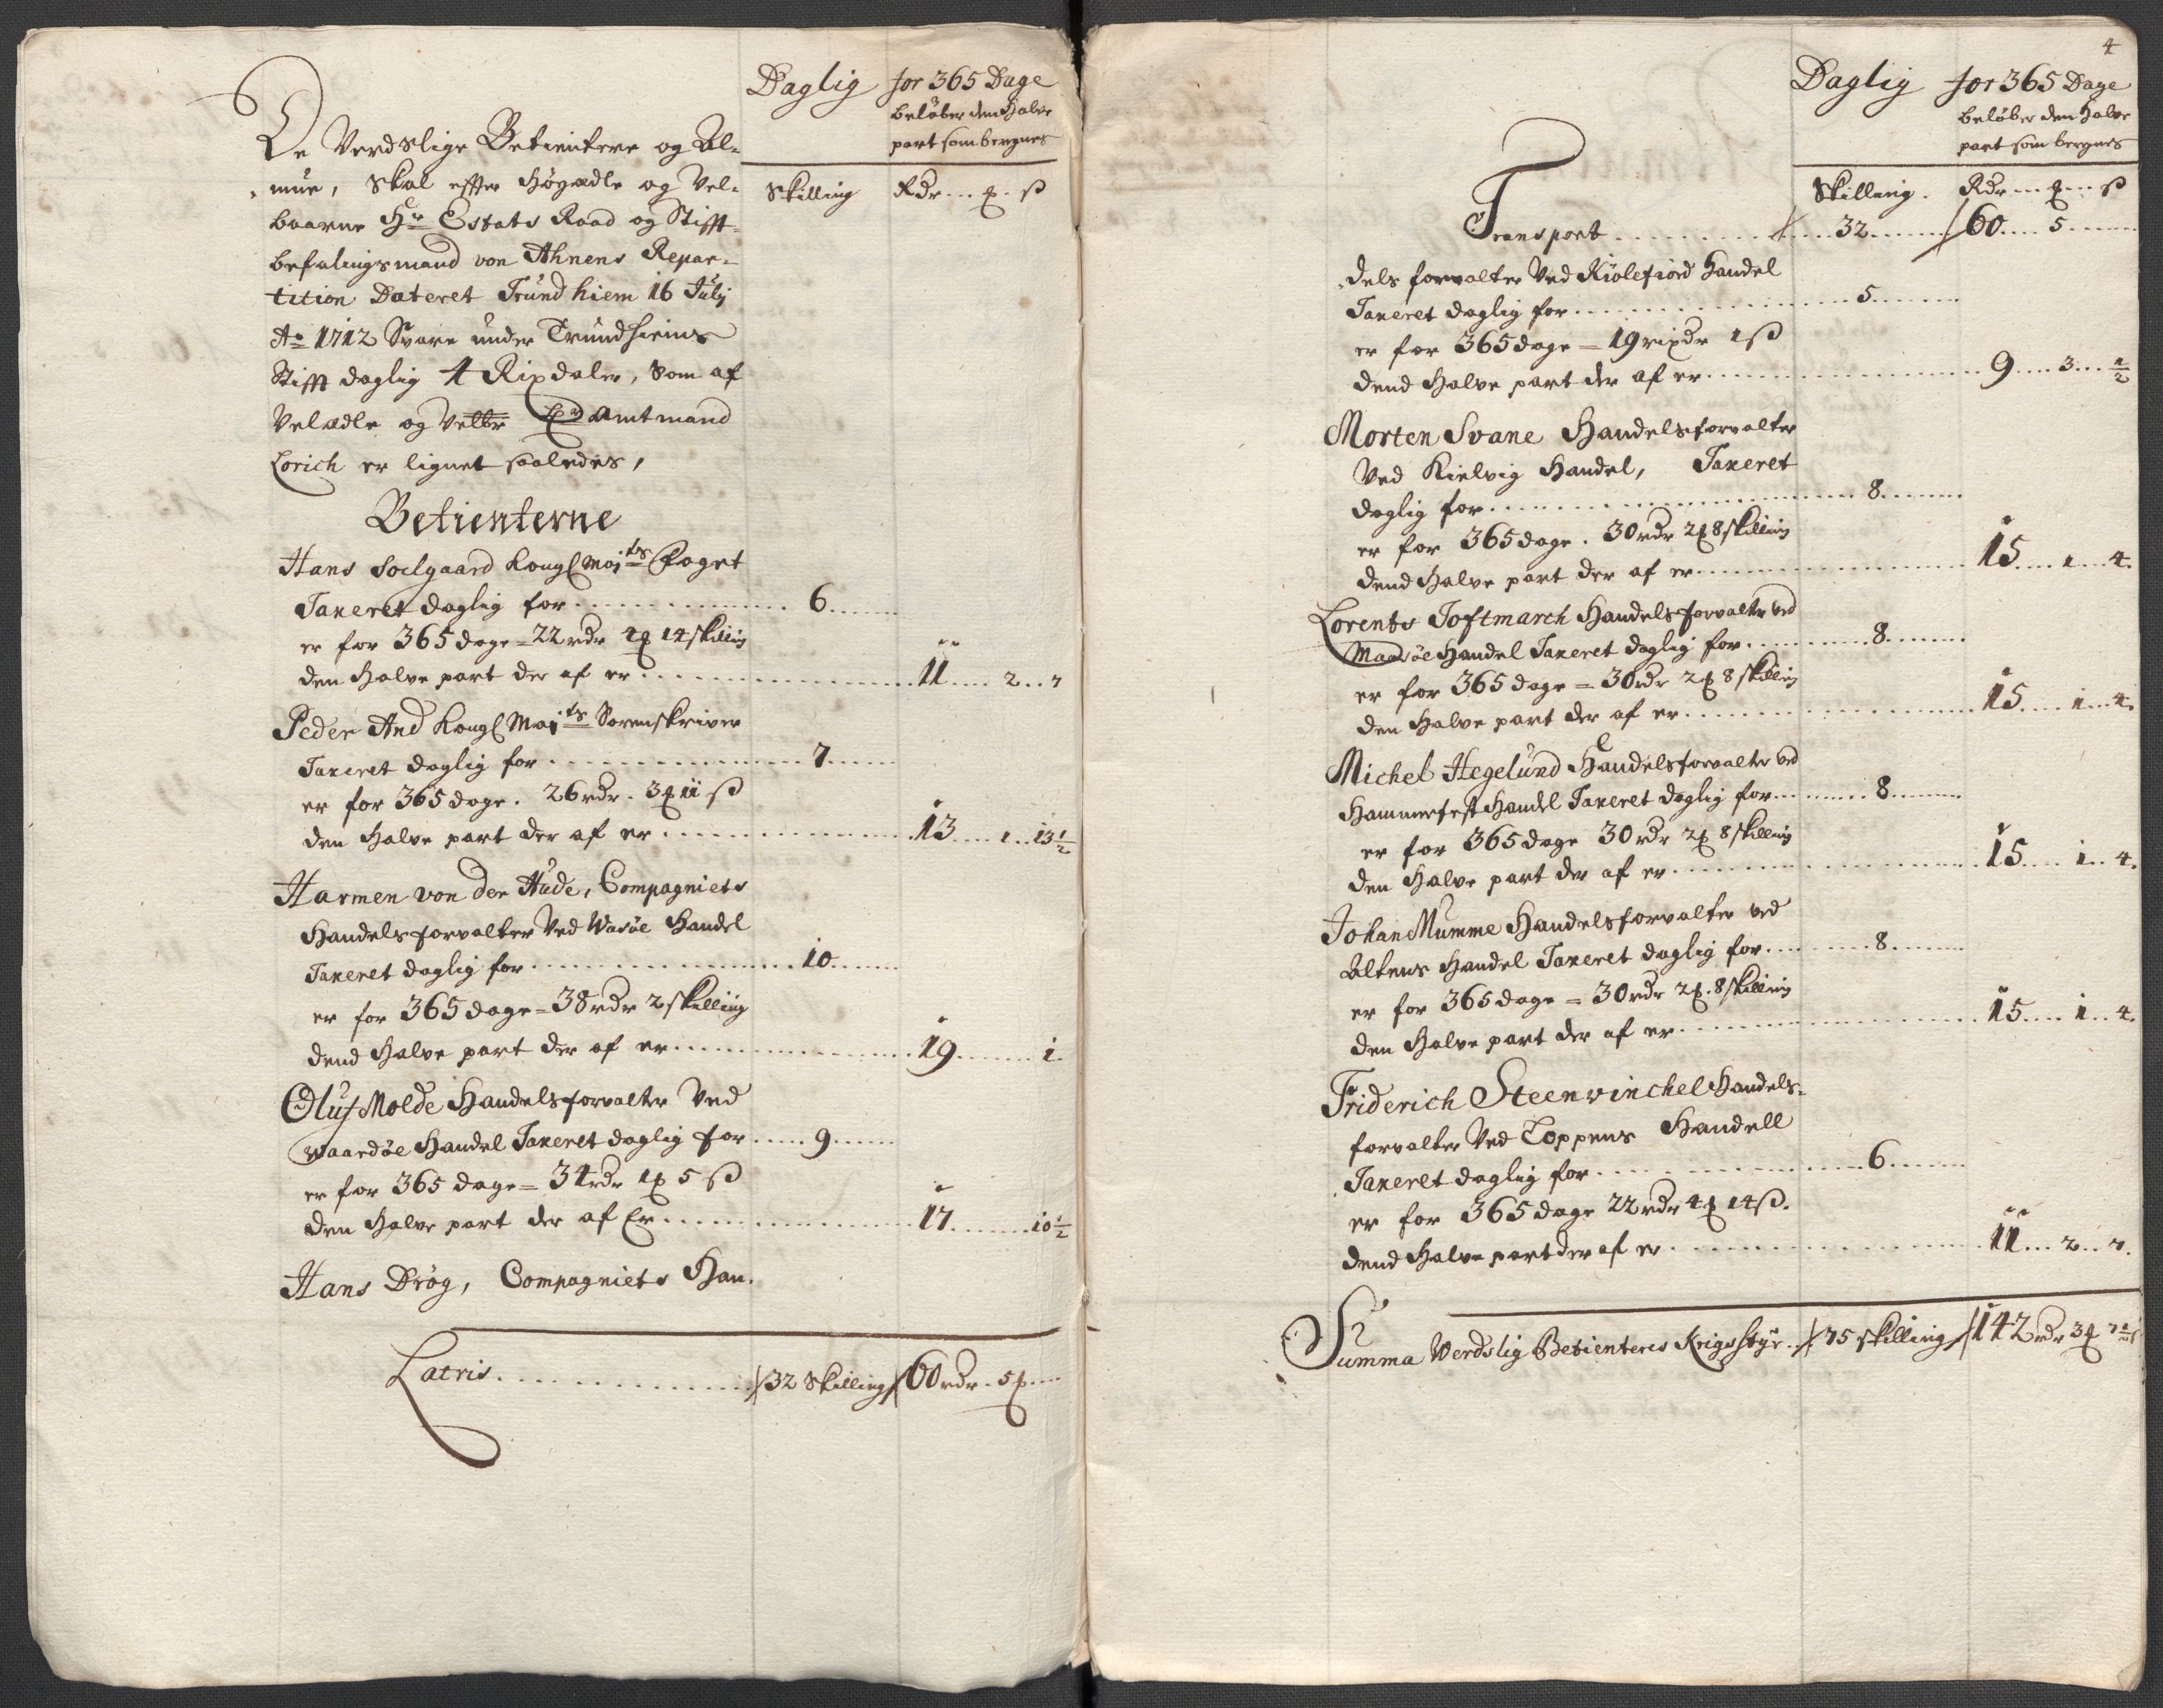 Daglig for 365 Dage
beløber dend Halve
part som beregnes
De Verdslige Betientere og Al-
mue, Skal effter Høgædle og Vel-
baarne Hr Estats Raad og Stifft
befalingsmand von Ahnens Repar-
tition Dateret Trundhiem 16 Julij
Skilling Rdr ... ꝑ .. ß
Ao 1712 Svare under Trundhiems
Stifft daglig 4 Rixdaler, Som af
Velædle og Velbr Hr Amtmand
Lorich er lignet saaledes,
Betienterne
Hans Soelgaard Kongl Majts Foget
Taxeret daglig for ............ 6 .....
er for 365 dage = 22 rdr 4ꝑ 14 skilling
den Halve part der af er ............ 11 .... 2 .. 7
Peder And Kongl Majts Sorenskriver
Taxeret daglig for ............ 7 .....
er for 365 dage . 26 rdr . 3ꝑ 11 ß
den Halve part der af er ............ 13 .... 1 .. 13 1/2
Harmen von der Hude, Compagniets
Handelsforvalter Ved Wasøe Handel
Taxeret daglig for ............ 10 .....
er for 365 dage = 38 rdr 2 skilling
dend Halve part der af er ............ 19 ........ 1.
Oluf Molde Handelsforvalter Ved
Waardøe Handel Taxeret daglig for ..... 9 .....
er for 365 dage = 34 rdr 1ꝑ 5 ß
den Halve part der af Er ............ 17 ........ 10 1/2
Hans Drög, Compagniets Han-
Latris ............ 32 Skilling 60 rdr . 5ꝑ ....
4
Daglig for 365 Dage
beløber den Halve
part som beregnes
Skilling . Rdr ... ꝑ ... ß
Transport ............ 32 ....... 60 .... 5 .....
dels forvalter Ved Kiølefiord Handel
Taxeret daglig for ............ 5 .....
er for 365 dage = 19 rixdr 1 ß
dend Halve part der af er ............ 9 .... 3 ... 1/2
Morten Svane Handelsforvalter
Ved Kielvig Handel, Taxeret
daglig for ............ 8 .....
er for 365 dage . 30 rdr 2ꝑ 8 skilling
dend Halve part der af er ............ 15 .... 1 ... 4.
Lorents Toftmarch Handelsforvalter ved
Maasøe Handel Taxeret daglig for ............ 8 .....
er for 365 dage = 30 rdr 2ꝑ 8 skilling
den Halve part der af er ............ 15 .... 1 ... 4.
Michel Hegelund Handelsforvalter ved
Hammerfest Handel Taxeret daglig for ............ 8 .....
er for 365 dage 30 rdr 2ꝑ 8 skilling
den Halve part der af er ............ 15 .... 1 .. 4.
Johan Mumme Handelsforvalter ved
Altens Handel Taxeret daglig for ............ 8 .....
er for 365 dage = 30 rdr 2ꝑ. 8 skilling
den Halve part der af er ............ 15 .... 1 .. 4.
Friderich Steenwinchel Handels-
forvalter Ved Loppens Handell
Taxeret daglig for ............ 6 .....
er for 365 dage 22 rdr 4ꝑ 14 ß.
dend Halve part der af er ............ 11 ... 2 .. 7.
Summa Werdslig Betienteres Krigsstyr .. 75 skilling 142 rdr 3ꝑ 7 1/2 ß